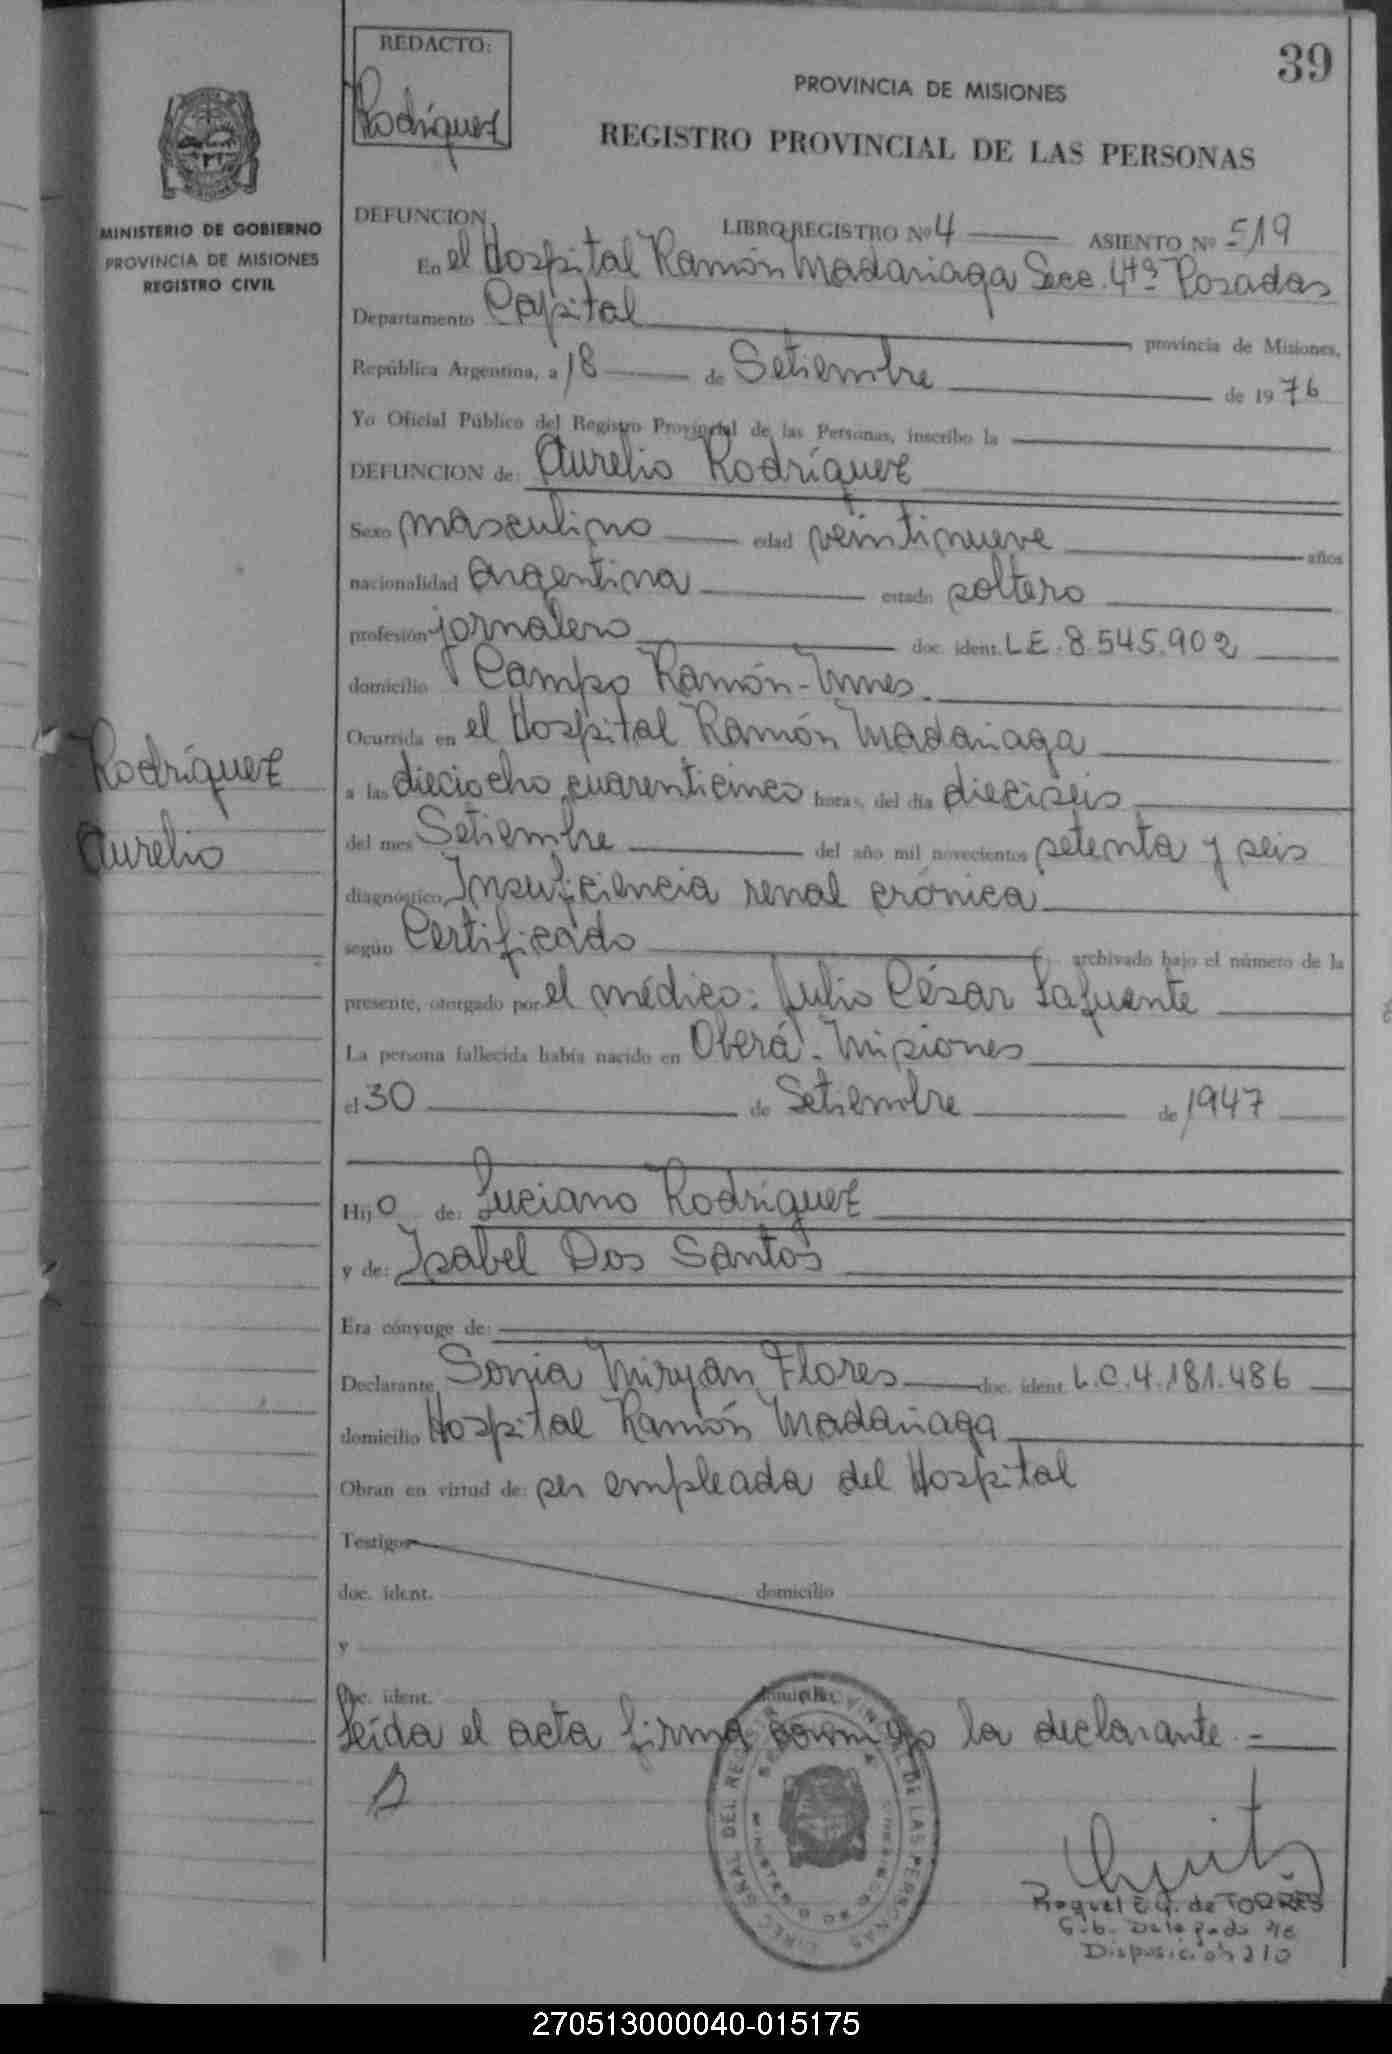 39
REDACTO:
Rodríguez
PROVINCIA DE MISIONES
REGISTRO PROVINCIAL DE LAS PERSONAS
MINISTERIO DE GOBIERNO
PROVINCIA DE MISIONES
REGISTRO CIVIL
DEFUNCION LIBRO REGISTRO Nº 4 ASIENTO Nº 519
En el Hospital Ramón Madariaga Secc. 4ta Posadas
Departamento Capital provincia de Misiones,
República Argentina, a 18 de Setiembre de 1976
Yo Oficial Público del Registro Provincial de las Personas, inscribo la
DEFUNCION de: Aurelio Rodríguez
Sexo masculino edad veintinueve años
nacionalidad argentina estado soltero
profesión jornalero doc. ident. L.E. 8.545.902
domicilio Campo Ramón-Mnes.
Ocurrida en el Hospital Ramón Madariaga
a las dieciocho cuarenticinco horas, del día dieciseis
del mes Setiembre del año mil novecientos setenta y seis
diagnóstico Insuficiencia renal crónica
según Certificado archivado bajo el número de la
presente, otorgado por el médico: Julio César Lafuente
La persona fallecida había nacido en Oberá - Misiones
el 30 de Setiembre de 1947
Hijo de: Luciano Rodríguez
y de: Isabel Dos Santos
Era cónyuge de:
Declarante Sonia Miryan Flores doc. ident. L.C. 4.181.486
domicilio Hospital Ramón Madariaga
Obran en virtud de: ser empleada del Hospital
Testigos
doc. ident. domicilio
y
doc. ident. domicilio
Leída el acta firma conmigo la declarante.-
Rodríguez
Aurelio
DIREC. GRAL DEL REGISTRO PROVINCIAL DE LAS PERSONAS
Raquel E. G. de TORRES
Sub. Delegada
Disposición 210
270513000040-015175